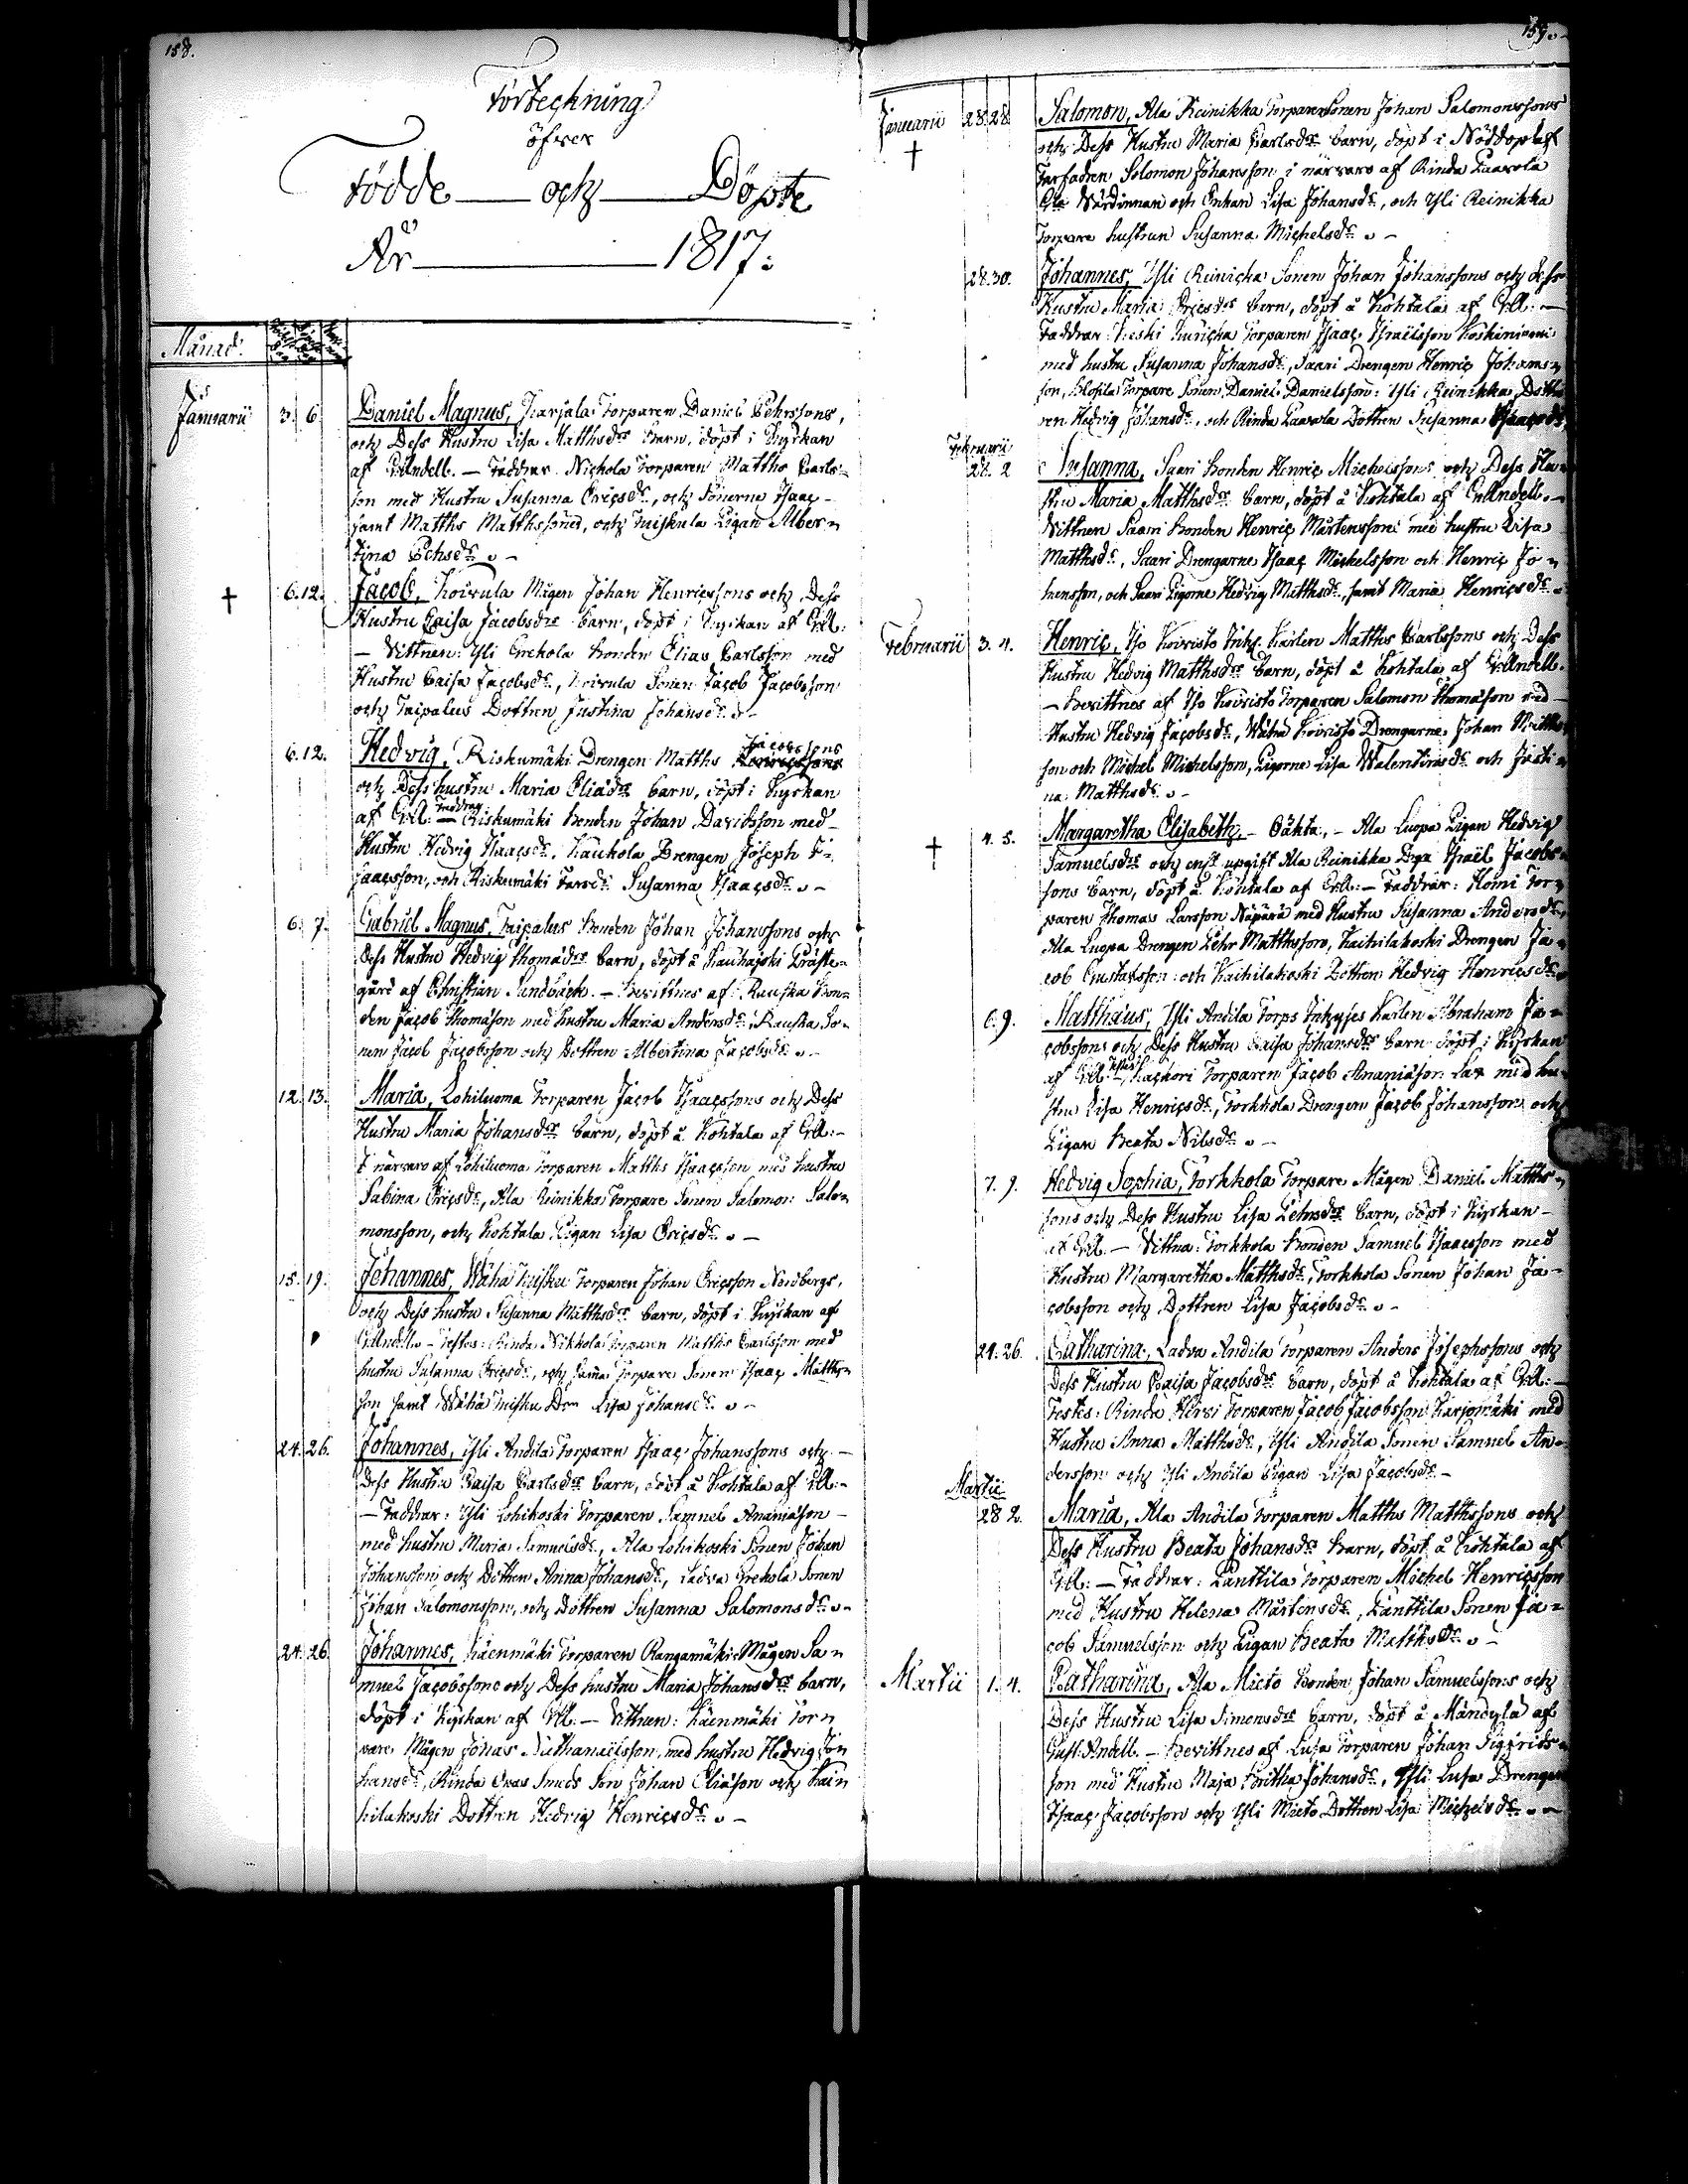 158.
Förteckning
öfver
Födde — och — Döpte
År — 1817:
Månad:
Januarii 3. 6. Daniel Magnus, Karjala Torparen Daniel Pehrssons,
och Dess Hustru Lisa Matthsdrs Barn, döpt i Kyrkan
af GAndell. — Faddrar Nichola Torparen Matths Carls-
son med Hustru Susanna Ericsdr, och Sönerne Isaac
samt Matths Matthssöner, och Luiskula Pigan Alber-
tina
† 6. 12. Jacob, Koivula Mågen Johan Henricssons och Dess
Hustru Caisa Jacobsdrs barn, döpt i Kyrkan af GAll:
— Vittnen: Yli Grekola Bonden Elias Carlsson med
Hustru Caisa Jacobsdr, Koivula Sonen Jacob Jacobsson
och Taipalus Dottren Justina Johansdr
6. 12. Hedvig, Riskumäki Drengen Matths Jacobssons
och Dess hustru Maria Eliædrs barn, döpt i Kyrkan
af GAll: — Faddrar Riskumäki Bonden Johan Davidsson med
Hustru Hedvig Isaacsdr, Kauhola Drengen Joseph I-
saacsson, och Riskumäki Susanna Isaacsdr
6. 7. Gabriel Magnus, Taipalus Bonden Johan Johanssons och
Dess Hustru Hedvig Thomædrs barn, döpt å Kauhajoki Präste-
gård af Christian Sundbäck. — Bevittnes af Rauska Bon-
den Jacob Thomasson med hustru Maria Andersdr, Rauska So-
nen Jacob Jacobsson och Dottren Albertina Jacobsdr
12. 13. Maria, Lohiluoma Torparen Jacob Isaacssons och Dess
Hustru Maria Johansdrs barn, döpt å Kohtala af GAll: —
I närvaro af Lohiluoma Torparen Matths Isaacsson med hustru
Sabina Ericsdr, Ala Reinikka Torpare Sonen Salomon Salo-
monsson, och Kohtala Pigan Lisa Ericsdr
15. 19. Johannes, Wähä Luisku Torparen Johan Ericsson Nordbergs,
och Dess hustru Susanna Matthsdrs barn, döpt i Kyrkan af
GAndell. — Testes: Rinda Nikkola Torparen Matths Carlsson med
hustru Susanna Ericsdr, och samma Torpare Sonen Isaac Matths-
son samt Wähä Luisku Lisa Johansdr
24. 26. Johannes, Yli Andila Torparen Isaac Johanssons och
Dess Hustru Caisa Carlsdrs barn, döpt å Kohtala af GAll: —
— Faddrar: Yli Lohikoski Torparen Samuel Ananiæson
med hustru Maria Samuelsdr, Ala Lohikoski Sonen Johan
Johansson och Dottren Anna Johansdr, Ladva Grekola Sonen
Johan Salomonsson, och Dottren Susanna Salomonsdr
24. 26. Johannes, Käenmäki Torparen Rangamäki Mågen Sa-
muel Jacobssons och Dess hustru Maria Johansdrs barn,
döpt i Kyrkan af GAll: — Vittnen: Käenmäki Tor-
pare Mågen Jonas Nathanaelsson, med hustru Hedvig Jo-
hansdr, Rinda Smeds Son Johan Eliæson och Kai-
hilakoski Dottren Hedvig Henricsdr
159.
Januarii † 28. 28. Salomon, Ala Reinikka Torpare Sonen Johan Salomonssons
och Dess Hustru Maria Carlsdrs barn, döpt i Nöddop af
Farfadren Salomon Johansson i närvaro af Rinda Laavola
Värdinnan och Enkan Lisa Johansdr, och Yli Reinikka
Torpare hustrun Susanna Michelsdr
28. 30. Johannes, Yli Reinicka Sonen Johan Johanssons och dess
Hustru Maria Ericsdrs barn, döpt å Kohtala af GAll: —
Faddrar: Keski Kuricka Torparen Isaac Israelsson Koskiniemi
med hustru Susanna Johansdr, Saari Drengen Henric Johans-
son, Torpare Sonen Daniel Danielsson: Yli Reinikka Dott-
ren Hedvig Johansdr, och Rinda Laavola Dottren Susanna Isaacsdr
Februarii
28. 2. Susanna, Saari Bonden Henric Michelssons och Dess Hu-
stru Maria Matthsdrs barn, döpt å Kohtala af GAndell. —
Vittnen Saari Bonden Henric Mårtensson med hustru Lisa
Matthsdr, Saari Drengarne Isaac Michelsson och Henric Jo-
hansson, och Saari Pigorne Hedvig Matthsdr, samt Maria Henricsdr
Februarii 3. 4. Henric, Iso Koivisto Inhs. Karlen Matths Carlssons och Dess
Hustru Hedvig Matthsdrs barn, döpt å Kohtala af GAndell.
— Bevittnes af Iso Koivisto Torparen Salomon Thomæson med
Hustru Hedvig Jacobsdr, Wähä Koivisto Drengarne Johan Matths-
son och Michel Michelsson, Pigorne Lisa Walentinsdr och Justi-
na Matthsdr
† 4. 5. Margaretha Elisabeth, — Oäkta, — Ala Luopa Pigan Hedvig
Samuelsdrs och enl. upgift Ala Reinikka Israël Jacobs-
sons barn, döpt å Kohtala af GAll: — Faddrar: Homi Tor-
paren Thomas Larsson Näpärä med Hustru Susanna Andersdr,
Ala Luopa Drengen Pehr Matthsson, Kaihilakoski Drengen Ja-
cob Gustafsson och Kaihilakoski Dottren Hedvig Henricsdr
6. 9. Matthæus, Yli Andila Torps Inhyses Karlen Abraham Ja-
cobssons och Dess Hustru Caisa Johansdrs barn döpt i Kyrkan
af GAll: Testes Kackori Torparen Jacob Ananiæson Lax med hu-
stru Lisa Henricsdr, Torkkola Drengen Jacob Johansson och
Pigan Beata Nilsdr
7. 9. Hedvig Sophia, Torkkola Torpare Mågen Daniel Matths-
sons och Dess Hustru Lisa Pehrsdrs barn, döpt i Kyrkan
af GAll. — Vittna: Torkkola Bonden Samuel Isaacsson med
Hustru Margaretha Matthsdr, Torkkola Sonen Johan Ja-
cobsson och Dottren Lisa Jacobsdr
24. 26. Catharina, Ladva Andila Torparen Anders Josephssons och
Dess Hustru Caisa Jacobsdrs barn, döpt å Kohtala af GAll: —
Testes: Rinda Hirvi Torparen Jacob Jacobsson Karjomäki med
Hustru Anna Matthsdr, Yli Andila Sonen Samuel An-
dersson och Yli Andila Pigan Lisa Jacobsdr —
Martii
28 2. Maria, Ala Andila Torparen Matths Matthssons och
Dess Hustru Beata Johansdrs Barn, döpt å Kohtala af
GAll: — Faddrar: Panttila Torparen Michel Henricsson
med Hustru Helena Mårtensdr, Panttila Sonen Ja-
cob Samuelsson och Pigan Beata Matthsdr
Martii 1. 4. Catharina, Ala Mieto Bonden Johan Samuelssons och
Dess Hustru Lisa Simonsdrs barn, döpt å Mändylä af
Gust. Andell. — Bevittnes af Lusa Torparen Johan Sigfrids-
son med Hustru Maja Johansdr, Yli Lusa Drengen
Isaac Jacobsson och Yli Mieto Dottren Lisa Michelsdr